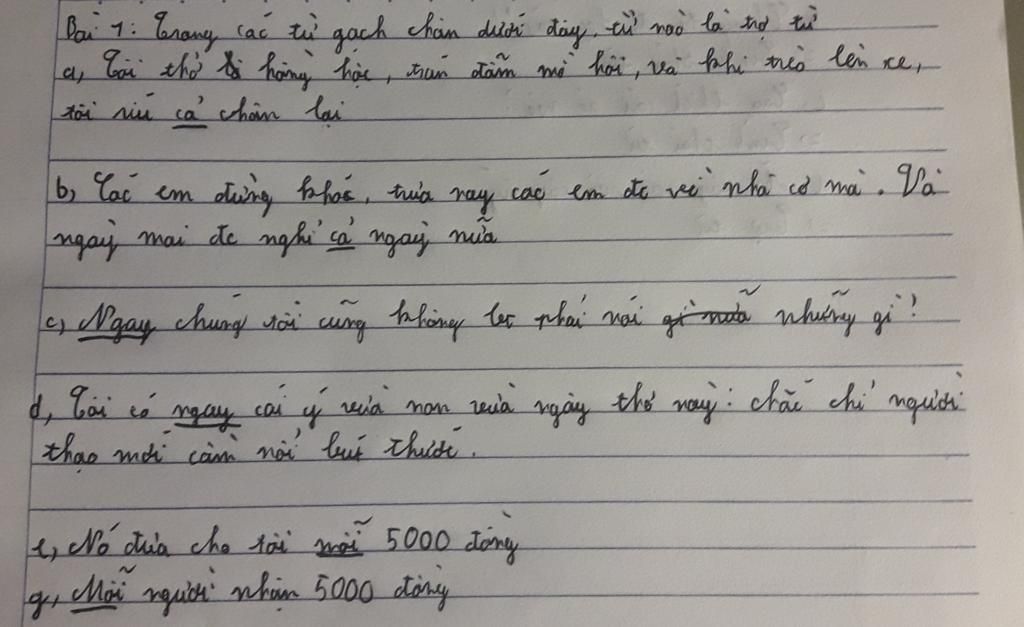 Bài 1: Trong các từ gạch chân dưới đây, từ nào là trợ từ
a, Tôi thở hồng hộc, trán đẫm mồ hôi, và khi trèo lên xe,
tôi ríu cả chân lại
b, Các em đừng khóc, trưa nay các em đc về nhà cơ mà. Và
ngày mai đc nghỉ cả ngày nữa
c, Ngay chúng tôi cũng không biết phải nói gì nữa những gì?
d, Tôi có ngay cái ý vừa non vừa ngây thơ này: chắc chỉ người
thạo mới cầm nổi bút thước.
e, Nó đưa cho tôi mỗi 5000 đồng
g, Mỗi người nhận 5000 đồng